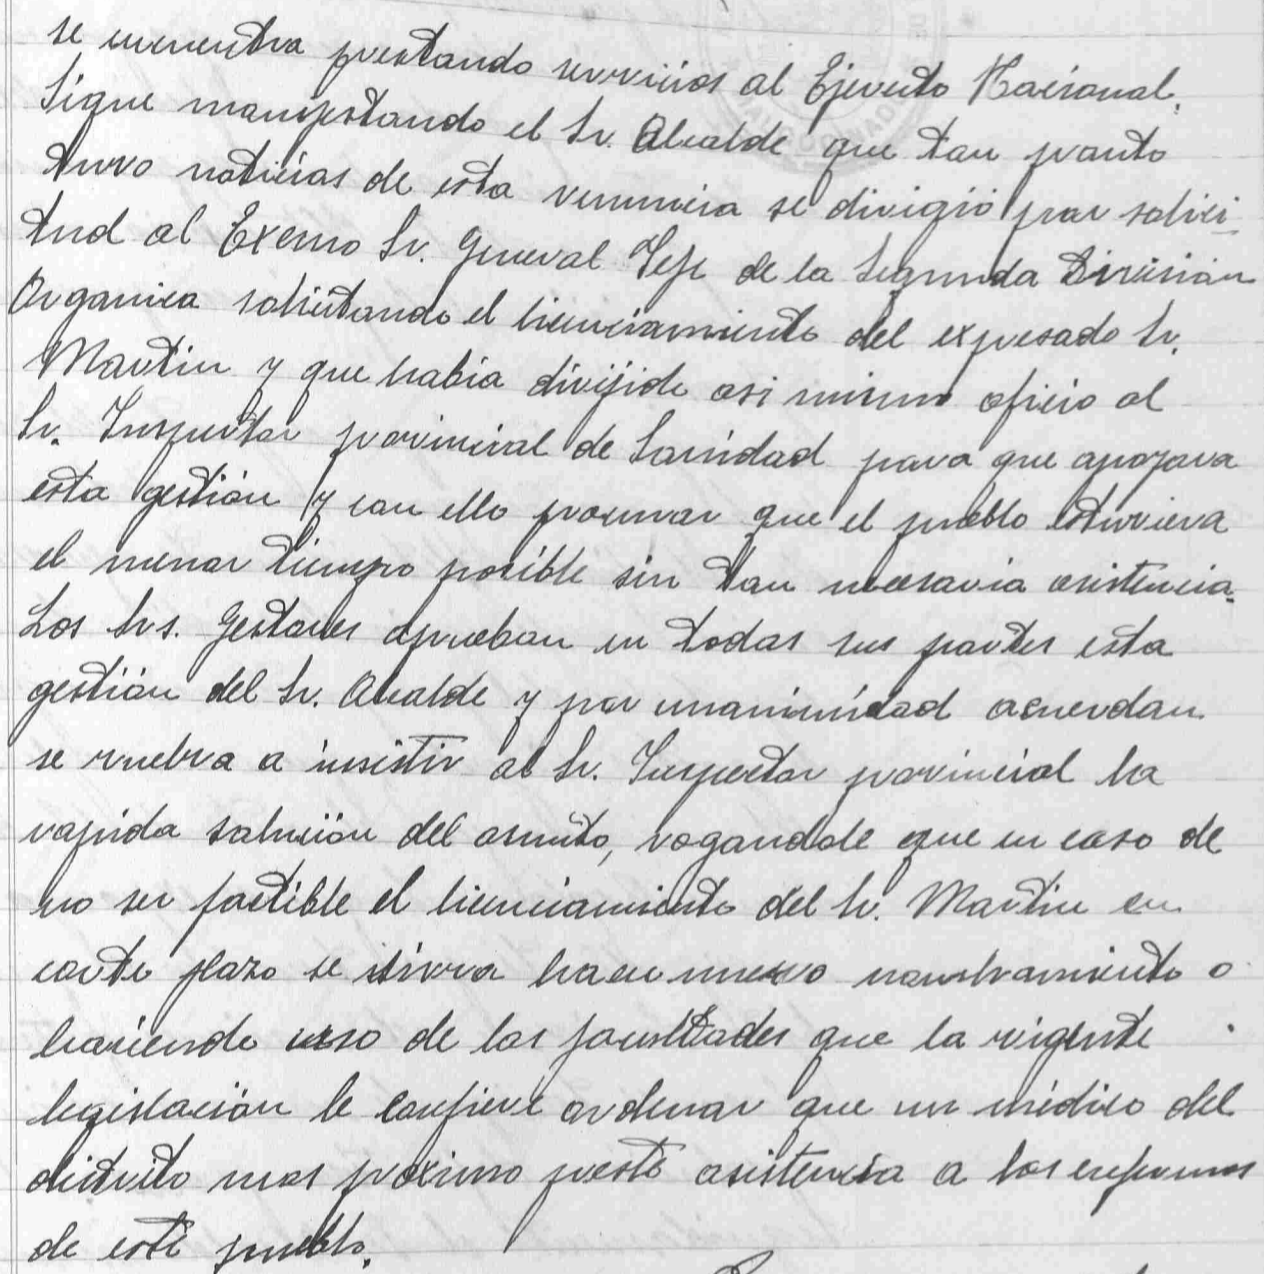 se encuentra prestando servicios al Ejercito Nacional.
Sigue manifestando el Sr. Alcalde que tan pronto
tuvo noticias de esta renuncia se dirigió por solici-
tud al Excmo Sr. General Jefe de la Segunda División
Organica solicitando el licenciamiento del expresado Sr.
Martin y que habia dirijido asi mismo oficio al
Sr. Inspector provincial de Sanidad para que apoyara
esta gestión y con ello procurar que el pueblo estuviera
el menor tiempo posible sin tan necesaria asistencia.
Los Srs. Gestores aprueban en todas sus partes esta
gestión del Sr. Alcalde y por unanimidad acuerdan
se vuelva a insistir al Sr. Inspector provincial la
rapida solución del asunto, rogandole que en caso de
no ser factible el licenciamiento del Sr. Martin en
corto plazo se sirva hacer nuevo nombramiento o
haciendo uso de las facultades que la vigente
legislación le confiere ordenar que un médico del
distrito mas próximo preste asistencia a los enfermos
de este pueblo.